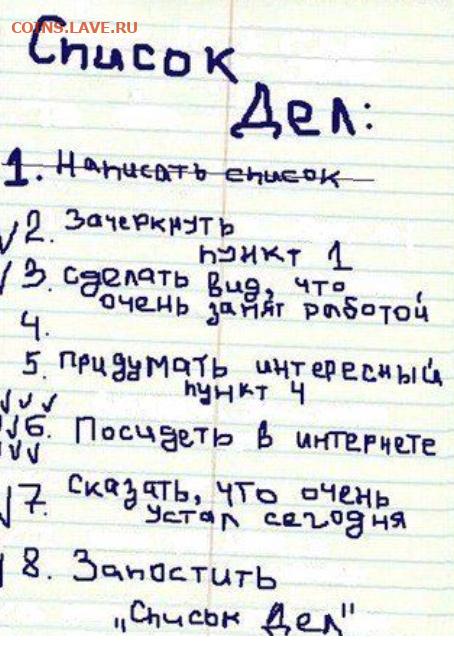 COINS.LAVE.RU
Список
Дел:
1. Написать список
2. Зачеркнуть
пункт 1
3. Сделать вид, что
очень занят работой
4.
5. Придумать интересный
пункт 4
6. Посидеть в интернете
7. Сказать, что очень
устал сегодня
8. Запостить
„Список Дел"